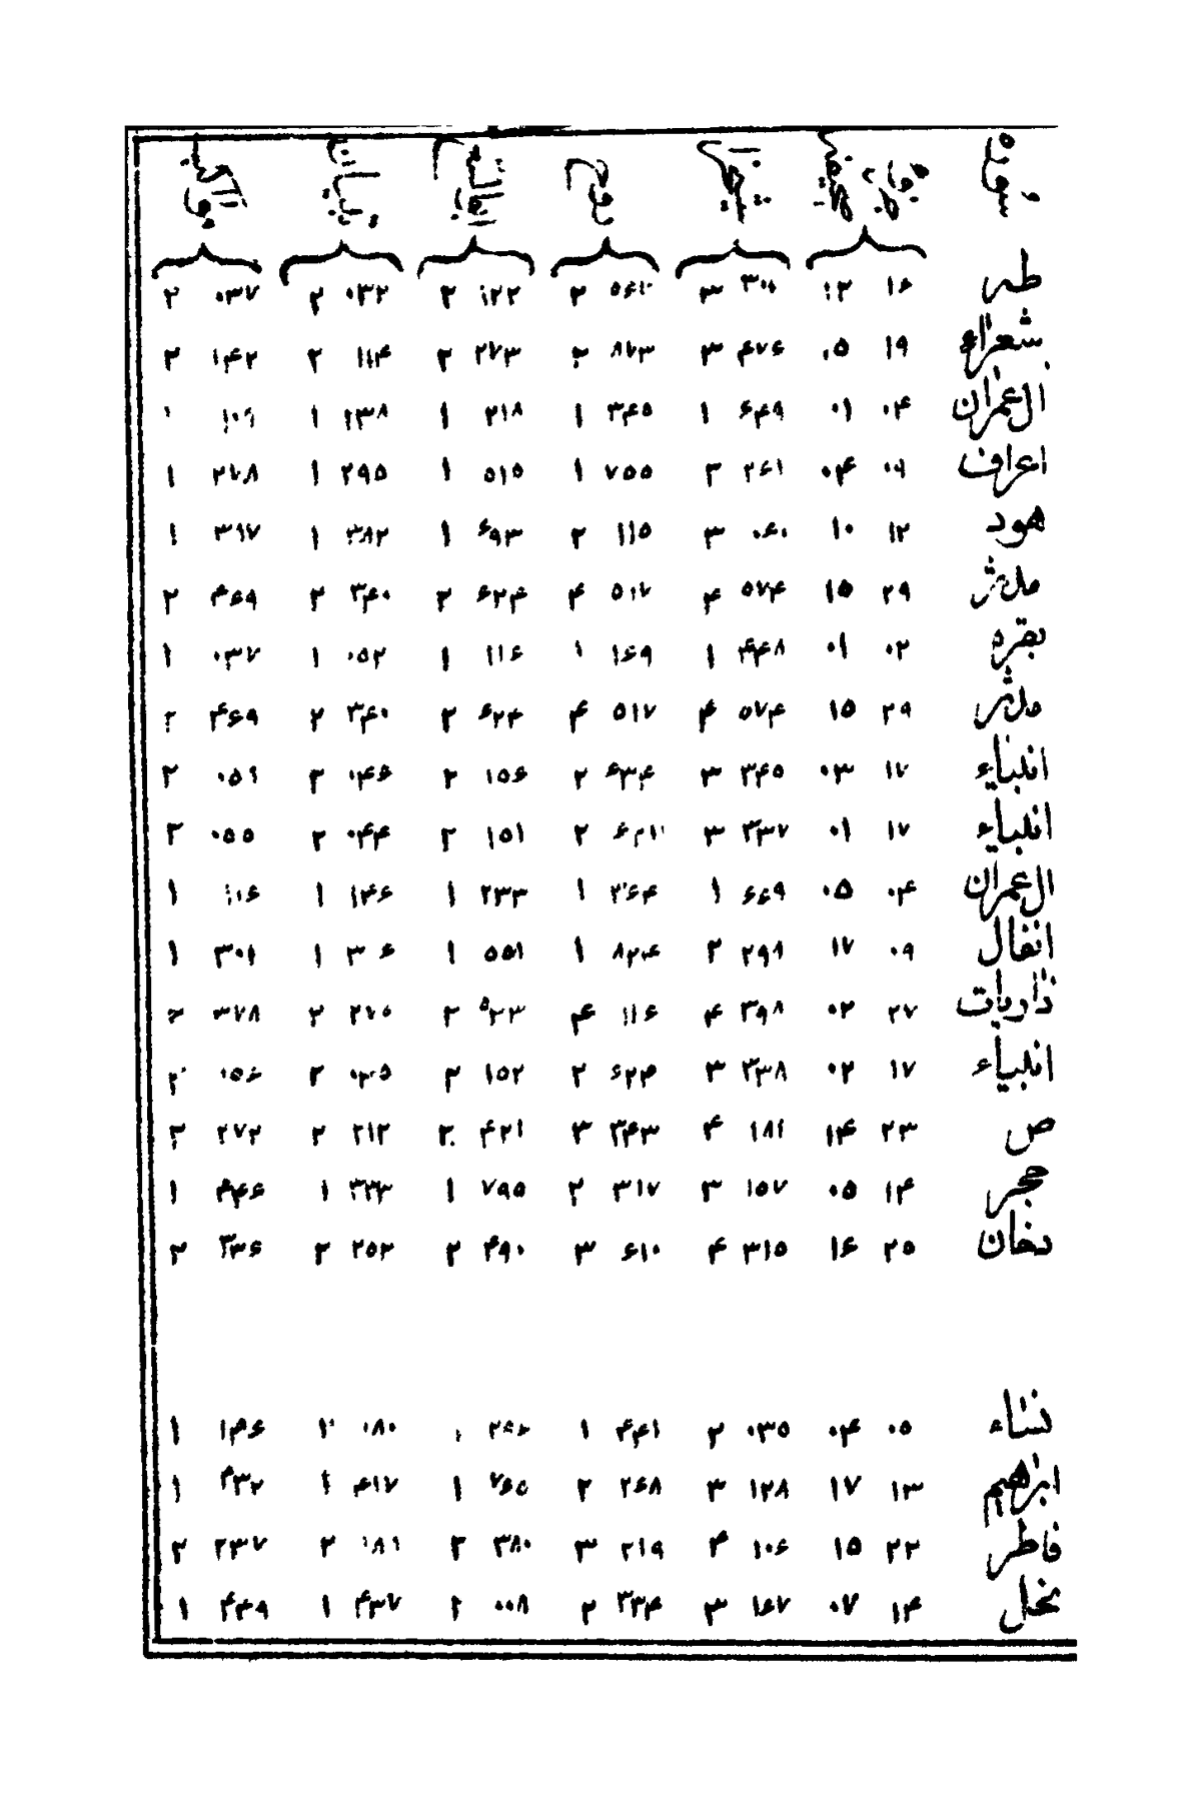 سوره
طه ۱۶ ۱۲ ۳ ۲ ۱۲۲ ۲ ۰۳۲ ۲ ۰۳۷ ۲
شعراء ۱۹ ۰۵ ۴۷۶ ۳ ۸۷۳ ۲ ۲۷۳ ۲ ۱۱۴ ۲ ۱۴۲ ۲
ال عمران ۰۴ ۰۱ ۶۴۹ ۱ ۳۴۵ ۱ ۲۱۸ ۱ ۱۳۸ ۱ ۱۰۹ ۱
اعراف ۰۹ ۰۴ ۲۶۱ ۲ ۷۵۵ ۱ ۵۱۵ ۱ ۲۹۵ ۱ ۲۷۸ ۱
هود ۱۲ ۱۰ ۰۶۰ ۳ ۱۱۵ ۲ ۶۹۳ ۱ ۳۸۲ ۱ ۳۹۷ ۱
مدثر ۲۹ ۱۵ ۵۷۴ ۴ ۵۱۷ ۴ ۶۲۴ ۲ ۳۴۰ ۲ ۴۶۹ ۲
بقره ۰۲ ۰۱ ۴۴۸ ۱ ۱۶۹ ۱ ۱۱۶ ۱ ۰۵۲ ۱ ۰۳۷ ۱
مدثر ۲۹ ۱۵ ۵۷۴ ۴ ۵۱۷ ۴ ۶۲۴ ۲ ۳۴۰ ۲ ۴۶۹ ۲
انبیاء ۱۷ ۰۳ ۳۴۵ ۳ ۶۳۴ ۲ ۱۵۶ ۲ ۰۴۶ ۲ ۰۵۹ ۲
انبیاء ۱۷ ۰۱ ۳۳۷ ۳ ۲ ۱۵۱ ۲ ۰۴۴ ۲ ۰۵۵ ۲
ال عمران ۰۴ ۰۵ ۶۶۹ ۱ ۳۶۴ ۱ ۲۳۳ ۱ ۱۴۶ ۱ ۱۱۶ ۱
انفال ۰۹ ۱۷ ۲۹۸ ۲ ۸۲۴ ۱ ۵۵۱ ۱ ۱ ۳۰۱ ۱
ذاریات ۲۷ ۰۲ ۳۹۸ ۴ ۱۱۶ ۴ ۵۲۳ ۲ ۲۷۵ ۲ ۳۷۸ ۲
انبیاء ۱۷ ۰۲ ۳۳۸ ۳ ۶۲۳ ۲ ۱۵۲ ۲ ۰۴۵ ۲ ۰۵۶ ۲
ص ۲۳ ۱۴ ۱۸۱ ۴ ۳۴۳ ۳ ۴۲۱ ۲ ۲۱۲ ۲ ۲۷۲ ۲
حجر ۱۴ ۰۵ ۱۵۷ ۳ ۳۱۷ ۲ ۷۹۵ ۱ ۳۳۳ ۱ ۴۴۶ ۱
دخان ۲۵ ۱۶ ۳۱۵ ۴ ۶۱۰ ۳ ۴۹۰ ۲ ۲۵۲ ۲ ۳۳۶ ۲
نساء ۰۵ ۰۴ ۰۳۵ ۲ ۴۴۱ ۱ ۱ ۰۸۰ ۱ ۱۴۶ ۱
ابراهیم ۱۳ ۱۷ ۱۲۸ ۳ ۲۶۸ ۲ ۷۶۵ ۱ ۴۱۷ ۱ ۴۳۲ ۱
فاطر ۲۲ ۱۵ ۱۰۶ ۴ ۲۱۹ ۳ ۳۸۰ ۲ ۱۸۱ ۲ ۲۳۷ ۲
نحل ۱۴ ۰۷ ۱۶۷ ۳ ۳۳۴ ۲ ۰۰۸ ۲ ۴۳۷ ۱ ۴۴۹ ۱